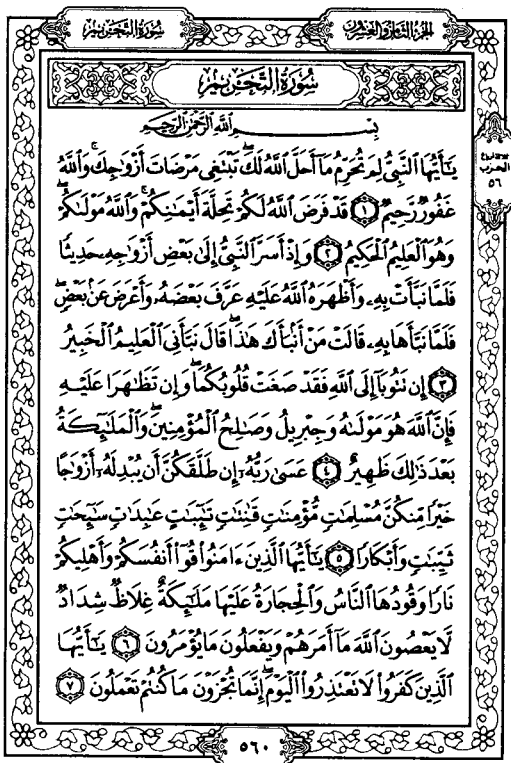 سُورَةُ التَّحْرِيمِ
الجُزءُ الثَّامِنُ وَالعِشْرُونَ
سُورَةُ التَّحْرِيمِ
بِسْمِ اللَّهِ الرَّحْمَٰنِ الرَّحِيمِ
يَٰٓأَيُّهَا ٱلنَّبِىُّ لِمَ تُحَرِّمُ مَآ أَحَلَّ ٱللَّهُ لَكَۖ تَبْتَغِى مَرْضَاتَ أَزْوَٰجِكَۚ وَٱللَّهُ
غَفُورٌ رَّحِيمٌ ١ قَدْ فَرَضَ ٱللَّهُ لَكُمْ تَحِلَّةَ أَيْمَٰنِكُمْۚ وَٱللَّهُ مَوْلَىٰكُمْۖ
وَهُوَ ٱلْعَلِيمُ ٱلْحَكِيمُ ٢ وَإِذْ أَسَرَّ ٱلنَّبِىُّ إِلَىٰ بَعْضِ أَزْوَٰجِهِۦ حَدِيثًا
فَلَمَّا نَبَّأَتْ بِهِۦ وَأَظْهَرَهُ ٱللَّهُ عَلَيْهِ عَرَّفَ بَعْضَهُۥ وَأَعْرَضَ عَنۢ بَعْضٍۖ
فَلَمَّا نَبَّأَهَا بِهِۦ قَالَتْ مَنْ أَنۢبَأَكَ هَٰذَاۖ قَالَ نَبَّأَنِىَ ٱلْعَلِيمُ ٱلْخَبِيرُ
٣ إِن تَتُوبَآ إِلَى ٱللَّهِ فَقَدْ صَغَتْ قُلُوبُكُمَاۖ وَإِن تَظَٰهَرَا عَلَيْهِ
فَإِنَّ ٱللَّهَ هُوَ مَوْلَىٰهُ وَجِبْرِيلُ وَصَٰلِحُ ٱلْمُؤْمِنِينَۖ وَٱلْمَلَٰٓئِكَةُ
بَعْدَ ذَٰلِكَ ظَهِيرٌ ٤ عَسَىٰ رَبُّهُۥٓ إِن طَلَّقَكُنَّ أَن يُبْدِلَهُۥٓ أَزْوَٰجًا
خَيْرًا مِّنكُنَّ مُسْلِمَٰتٍ مُّؤْمِنَٰتٍ قَٰنِتَٰتٍ تَٰٓئِبَٰتٍ عَٰبِدَٰتٍ سَٰٓئِحَٰتٍ
ثَيِّبَٰتٍ وَأَبْكَارًا ٥ يَٰٓأَيُّهَا ٱلَّذِينَ ءَامَنُوا۟ قُوٓا۟ أَنفُسَكُمْ وَأَهْلِيكُمْ
نَارًا وَقُودُهَا ٱلنَّاسُ وَٱلْحِجَارَةُ عَلَيْهَا مَلَٰٓئِكَةٌ غِلَاظٌ شِدَادٌ
لَّا يَعْصُونَ ٱللَّهَ مَآ أَمَرَهُمْ وَيَفْعَلُونَ مَا يُؤْمَرُونَ ٦ يَٰٓأَيُّهَا
ٱلَّذِينَ كَفَرُوا۟ لَا تَعْتَذِرُوا۟ ٱلْيَوْمَۖ إِنَّمَا تُجْزَوْنَ مَا كُنتُمْ تَعْمَلُونَ ٧
الحزب
٥٦
٥٦٠